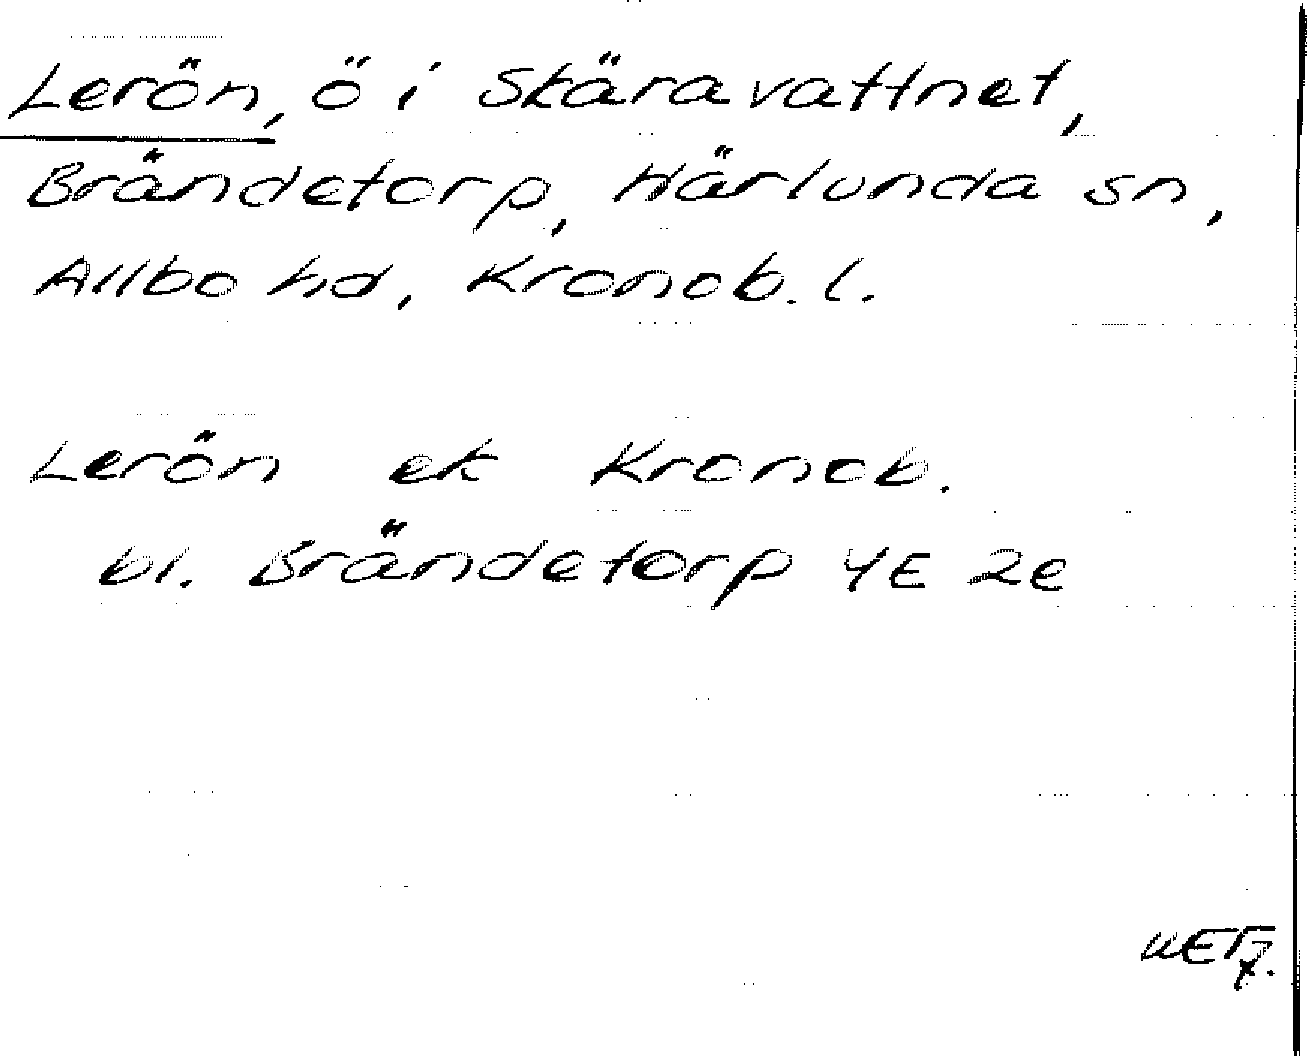 Lerön, ö i Skäravattnet,
Brändetorp, Härlunda sn,
Allbo hd, Kronob. l.
Lerön ek Kronob.
bl. Brändetorp 4E 2e